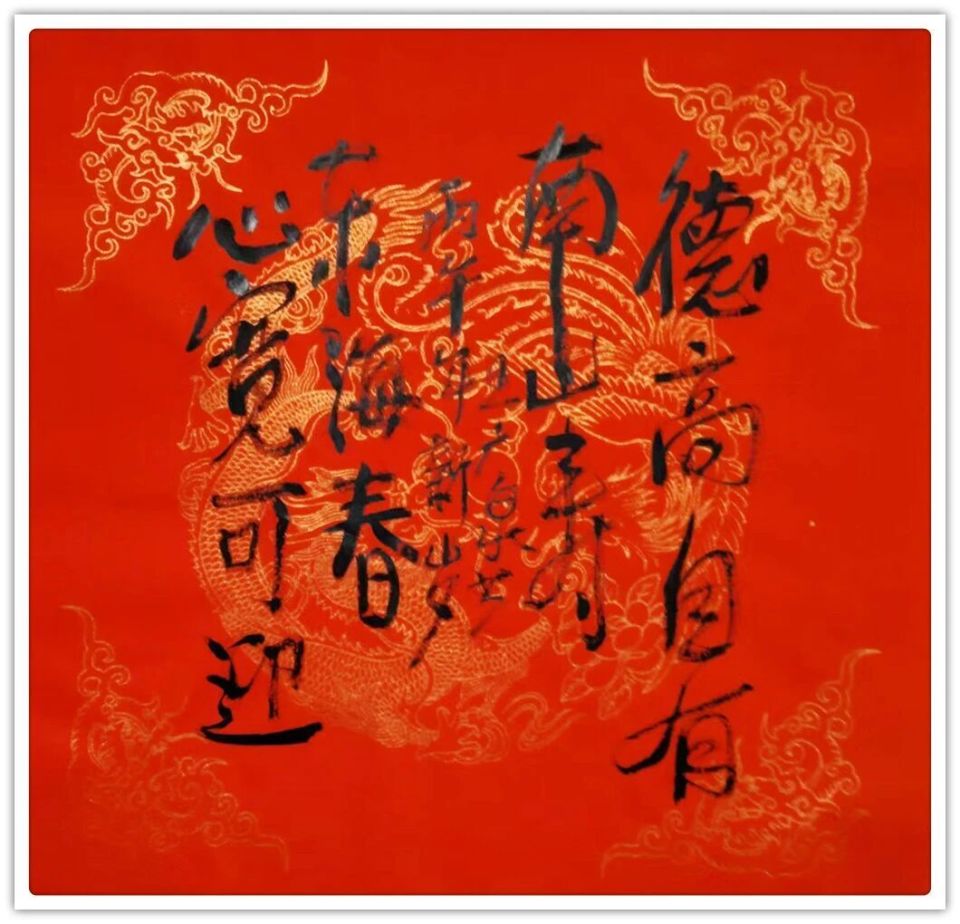 德高自有
南山寿
丙午年新岁
东海春
心宽可迎